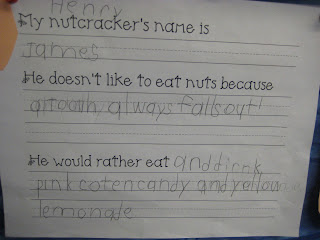 Henry
My nutcracker's name is
James
He doesn't like to eat nuts because
a tooth always falls out!
He would rather eat and drink
pink coten candy and yellow
lemonade